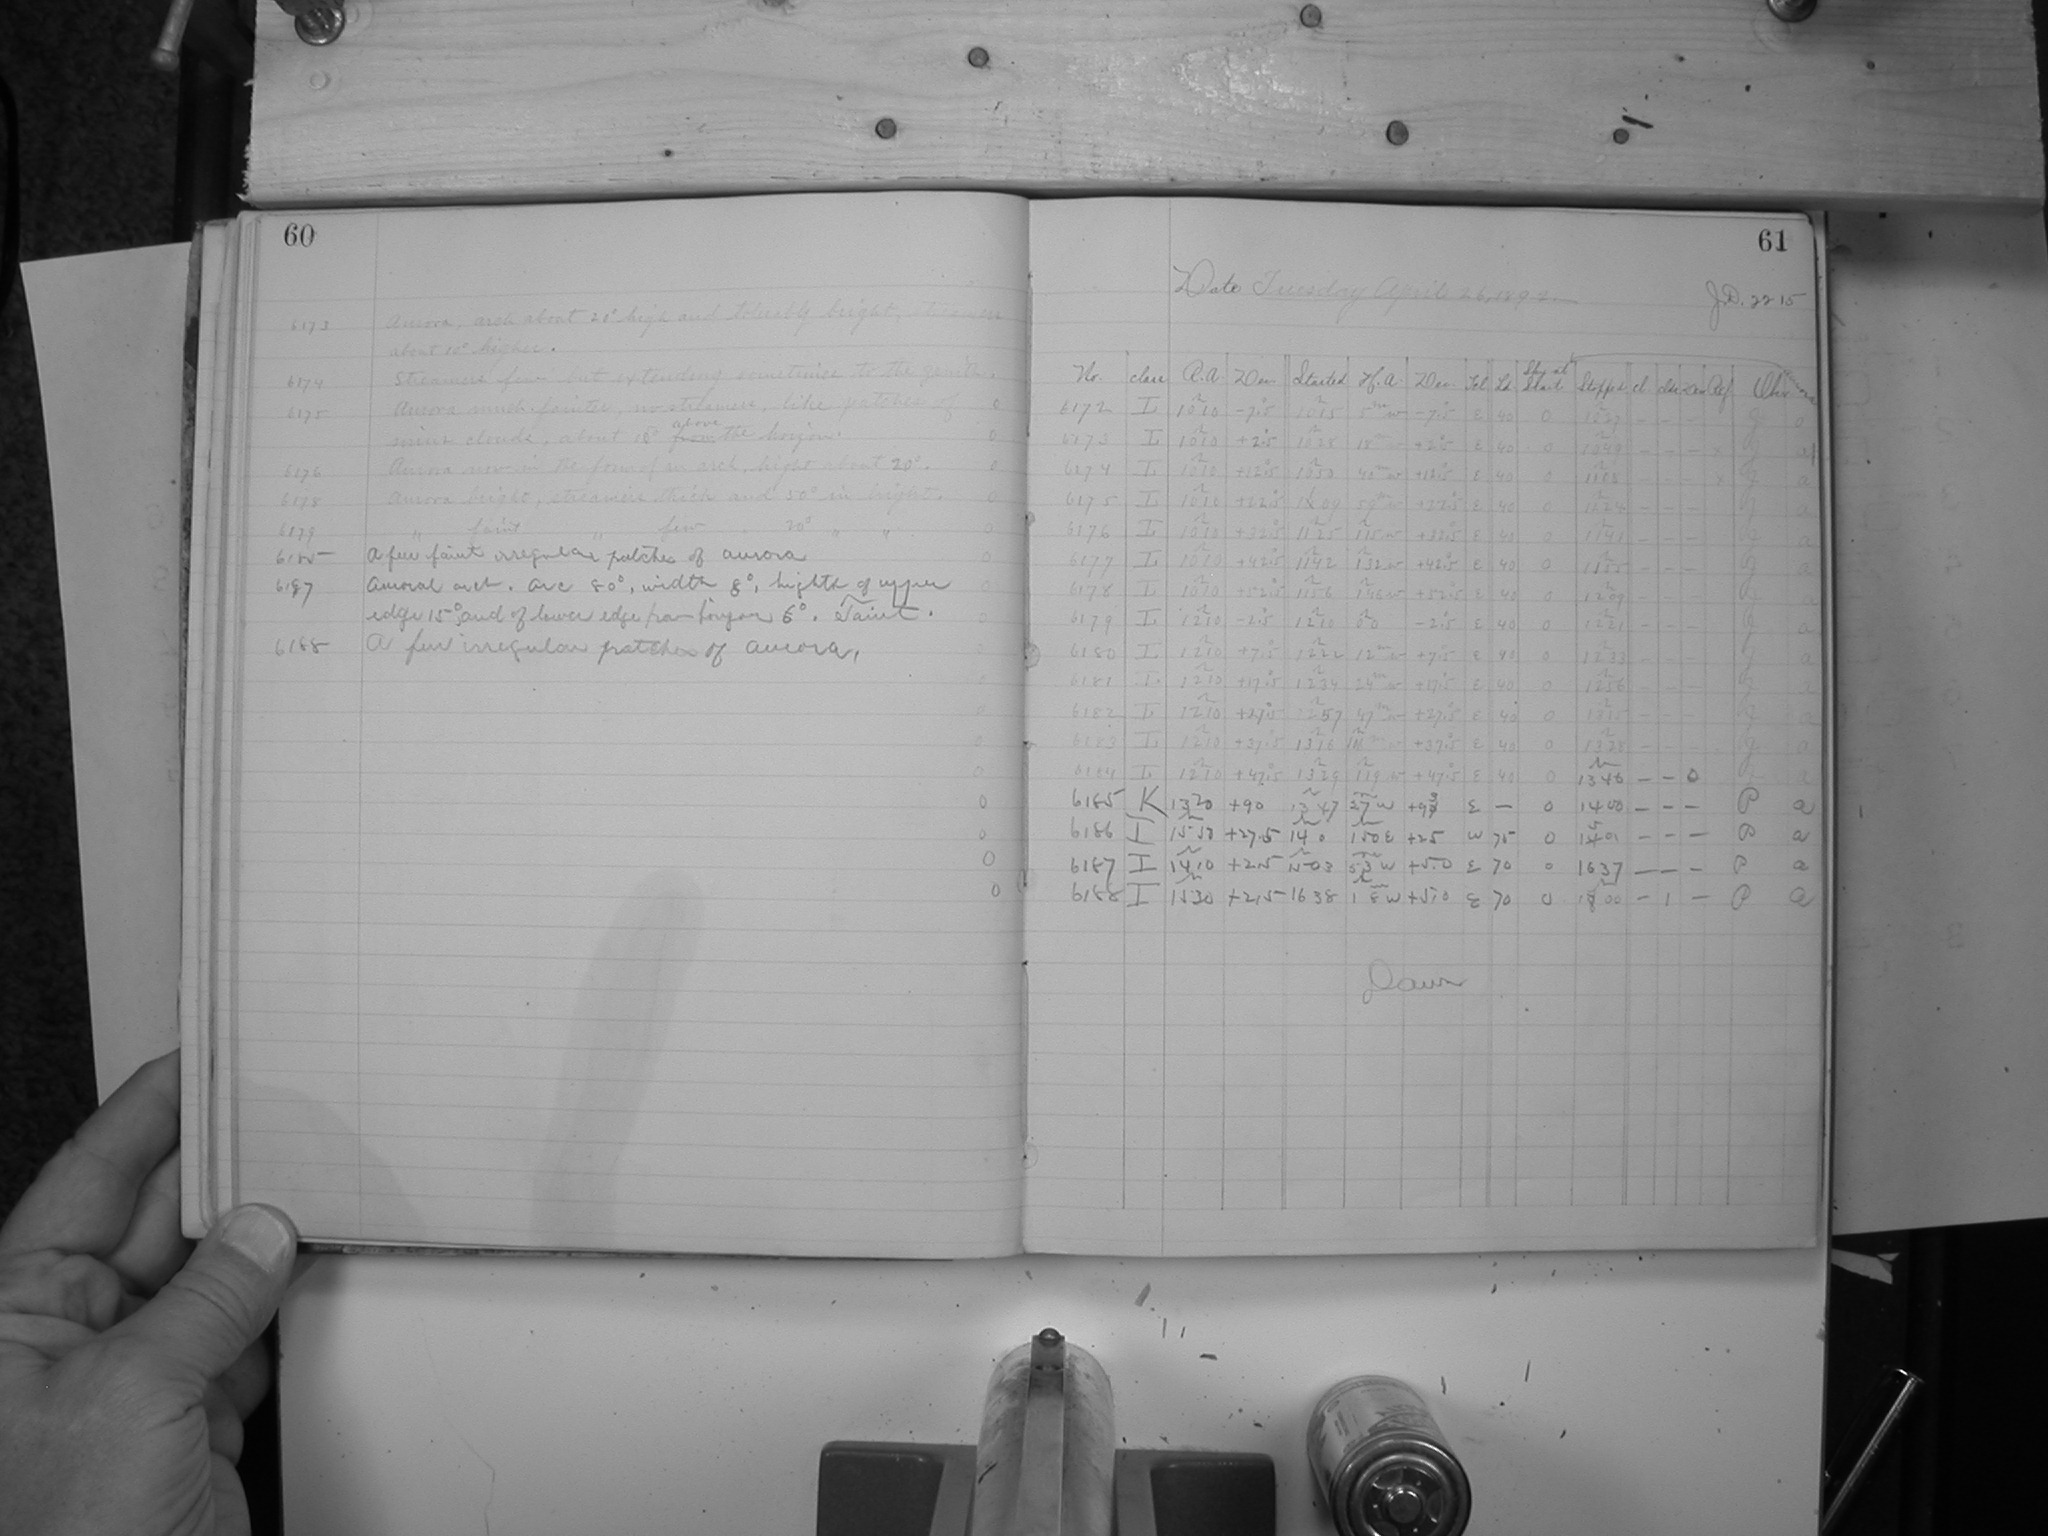 60
6173 Aurora, arch about 20° high and tolerably bright,
about 10° higher.
6174 Streamers few but extending sometimes to the zenith.
6175 Aurora much fainter, no streamers, like patches of 0
above
cirrus clouds, about 18° from the horizon. 0
6176 Aurora now in the form of an arch, hight about 20°. 0
6178 Aurora bright, streamers thick and 30° in hight. 0
6179 " faint " few 20° " " 0
6185 A few faint irregular patches of aurora 0
6187 Auroral arch. Arc 80°, width 8°, highth of upper
edge 15° and of lower edge from horizon 6°. Faint. 0
6188 A few irregular patches of aurora,
0
0
0
0
0
0
0
0
61
Date Tuesday April 26, 1892
J.D. 2215
No. class R.A. Dec. Started H.A. Dec. Tel Ld. Sh. at Start Stopped cl Obs
6172 I 10 10 -7.5 10 15 5 w -7.5 E 40 0 10 27 - - - J a
6173 I 10 10 +2.5 10 28 18 w +2.5 E 40 0 10 49 - - - x J
6174 I 10 10 +12.5 10 50 40 w +12.5 E 40 0 11 08 - - - x J a
6175 I 10 10 +22.5 11 09 59 w +22.5 E 40 0 11 24 - - - J a
6176 I 10 10 +32.5 11 25 1 15 w +32.5 E 40 0 11 41 - - - J a
6177 I 10 10 +42.5 11 42 1 32 w +42.5 E 40 0 11 55 - - - J a
6178 I 10 10 +52.5 11 56 1 46 w +52.5 E 40 0 12 09 - - - J a
6179 I 12 10 -2.5 12 10 0 0 -2.5 E 40 0 12 21 - - - J a
6180 I 12 10 +7.5 12 22 12 w +7.5 E 40 0 12 33 - - - J a
6181 I 12 10 +17.5 12 34 24 w +17.5 E 40 0 12 56 - - - J a
6182 I 12 10 +27.5 12 57 47 w +27.5 E 40 0 13 15 - - - J a
6183 I 12 10 +37.5 13 16 +37.5 E 40 0 13 28 - - - J a
6184 I 12 10 +47.5 13 29 1 19 w +47.5 E 40 0 13 46 - - 0 J a
6185 K 13 20 +90 13 47 27 w E - 0 14 00 - - - P a
6186 I 15 50 +27.5 14 0 1 50 E +25 W 75 0 15 01 - - - P a
6187 I 14 10 +2.5 15 03 53 w +5.0 E 70 0 16 37 - - - P a
6188 I 15 30 +2.5 16 38 1 8 w +5.0 E 70 0 18 00 - 1 - P a
Dawn